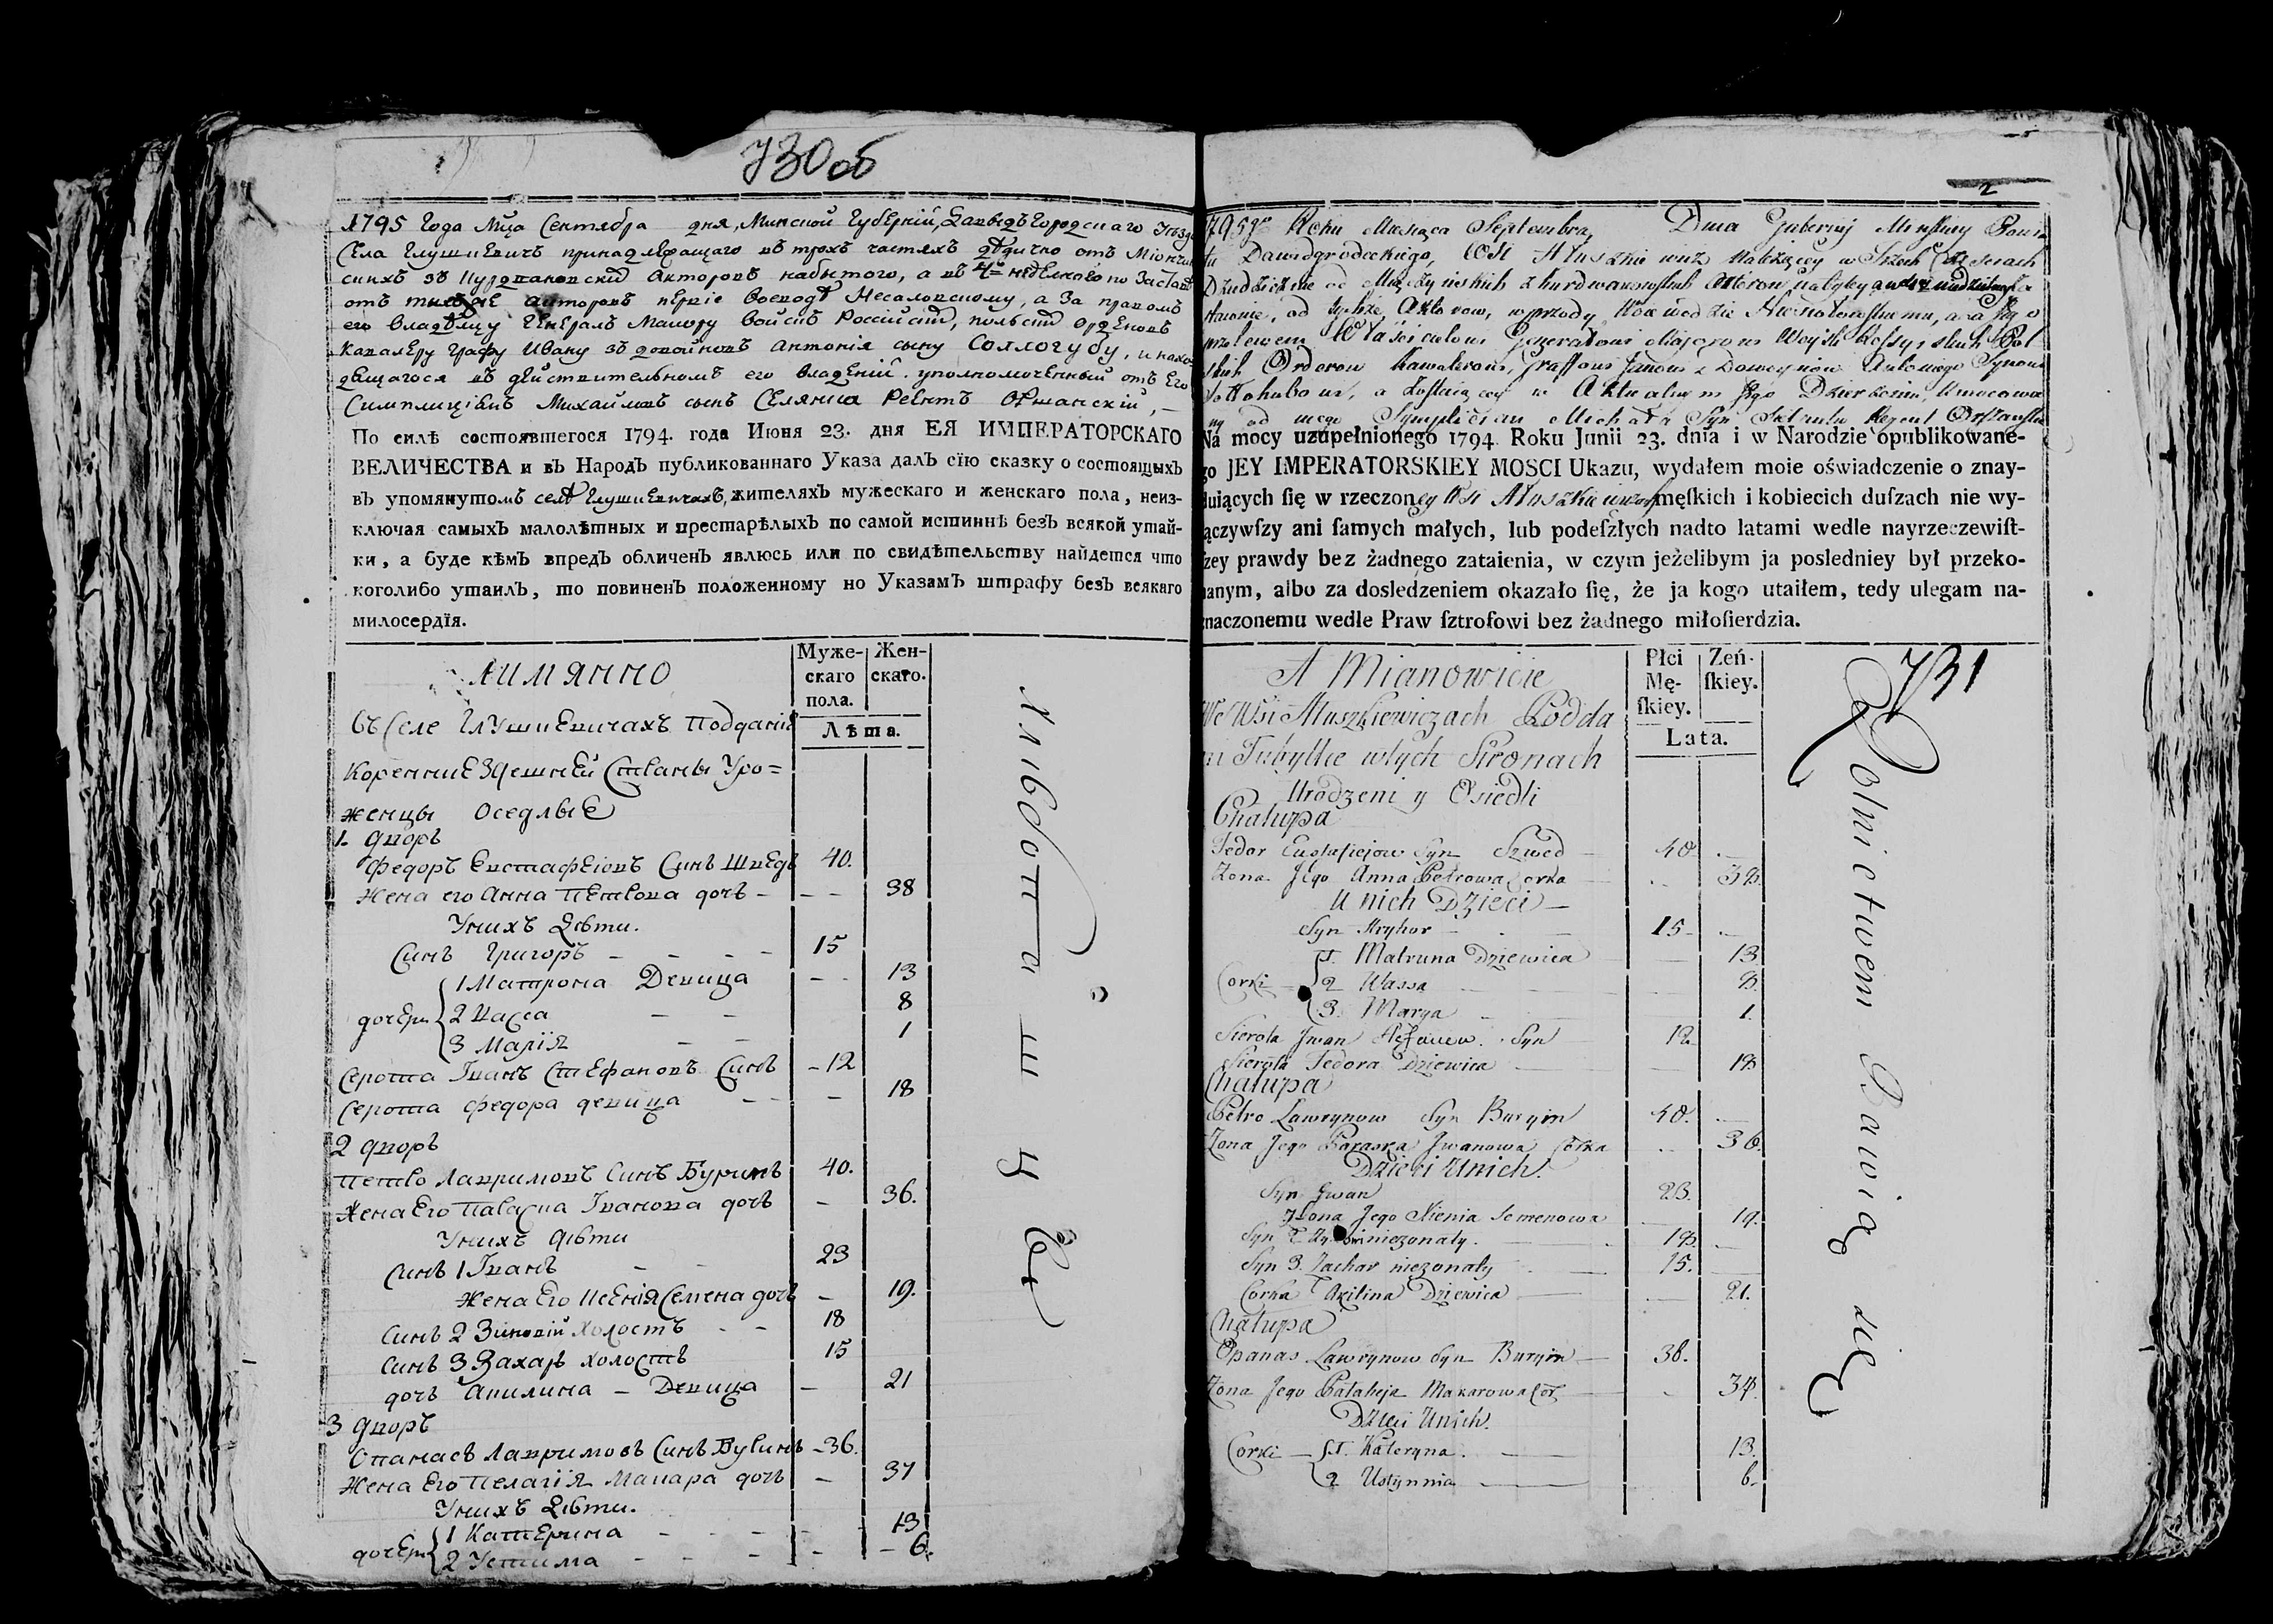 730об
1795 года Мца Сентября дня, Минской Губерніи, Давыдъ Городскаго
Села Глушкевичъ принадлежащаго въ трохъ частяхъ дѣдично отъ
набытого, а въ
отъ воеводѣ а за правомъ
его владѣльцу Генералъ Маиору войскъ Россійскихъ, польскихъ орденовъ
Кавалеру Графу Ивану зъ Антонія сыну Соллогубу,
въ дѣйствительномъ его владеніи уполномоченный отъ Его
Симплиціанъ Михайловъ сынъ Реентъ Оршанскій,
По силѣ состоявшегося 1794. года Июня 23. дня ЕЯ ИМПЕРАТОРСКАГО
ВЕЛИЧЕСТВА и въ Народъ публикованнаго Указа далъ сїю сказку о состоящыхъ
въ упомянутомъ селѣ Глушкевичахъ, жителяхъ мужескаго и женскаго пола, неиз-
ключая самыхъ малолѣтныхъ и престарѣлыхъ по самой истиннѣ безъ всякой утай-
ки, а буде кѣмъ впредъ обличенъ явлюсь или по свидѣтельству найдется что
коголибо утаилъ, то повиненъ положенному но Указамъ штрафу безъ всякаго
милосердїя.
Аимянно
Муже-
скаго
пола.
Жен-
скаго.
Лѣта.
Въ Селе Глушкевичахъ Подданія
Коренние Здешней Страны Уро=
женцы Оседлые
1. Дворъ
Федоръ Евстафеіовъ Синъ Шведъ 40.
Жена его Анна Петрова дочъ — 38
Унихъ Дѣти.
Синъ Григоръ 15
дочери 1 Матрона Девица 13
2 Васса 8
3 Марія 1
Серота Іванъ Стефановъ Синъ 12
Серота Федора девица 18
2 Дворъ
Петро Лавриновъ Синъ Буринъ 40.
Жена Его Параска Іванова дочъ 36.
Унихъ Дѣти
Синъ 1 Іванъ 23
Жена Его Ксенія Семена дочъ 19.
Синъ 2 Зіновій Холостъ 18
Синъ 3 Захаръ холостъ 15
дочъ Акилина — Девица 21
3 Дворъ
Опанасъ Лавриновъ Синъ Буринъ 36.
Жена Его Пелагія Макара дочъ 34
Унихъ Дѣти.
дочери 1 Катерина 13
2 Устима 6.
2
1795go Roku Miesiąca Septembra, Dnia Gubernij Minskiey
Dawidgrodeckiego, Wsi Hłuszkiewicz Należącey w Trzech Częsciach
Dziedzicznie od
od tychże Aktorow, w przody Woiewodzie
Właścicielowi Generałowi Majorowi Woysk Rossyiskich Pol
skich Orderow Kawalerowi, Graffowi Janowi z Antoniego Synowi
Sołłohubowi, a w Aktualnym Jego Dzierżeniu,
od niego Symplician Michała Syn Regent Orszanski
Na mocy uzupełnionego 1794 Roku Junii 23. dnia i w Narodzie opublikowane-
go JEY IMPERATORSKIEY MOSCI Ukazu, wydałem moie oświadczenie o znay-
duiących ſię w rzeczoney Wsi Hłuszkiewiczach męſkich i kobiecich duſzach nie wy-
ączywſzy ani ſamych małych, lub podeſzłych nadto latami wedle nayrzeczewiſt-
ſzey prawdy bez żadnego zataienia, w czym jeżelibym ja posledniey był przeko-
nanym, albo za dosledzeniem okazało ſię, że ja kogo utaiłem, tedy ulegam na-
znaczonemu wedle Praw ſztrofowi bez żadnego miłoſierdzia.
A Mianowicie
Płci
Mę-
ſkiey.
Zeń-
ſkiey.
Lata.
731
We Wsi Hłuszkiewiczach Podda
ni Tubylce wtych Stronach
Urodzeni y Osiedli
Chałupa
Fedor Eustafiejow Syn Szwed — 40
Zona Jego Anna Petrowa Corka 38.
U nich Dzieci —
Syn Hryhor 15
Corki 1. Matruna Dziewica 13
2 Wassa 8.
3. Marya 1.
Sierota Jwan Stefanow Syn 12
Sierota Fedora Dziewica 18
Chałupa
Petro Ławrynow Syn Buryin 40.
Zona Jego Paraska Jwanowa Corka 36.
Dzieci Unich.
Syn Jwan 23.
Zona Jego Xienia Semenowa 19.
Syn 2 niezonaty. 18
Syn 3. Zachar niezonaty 15.
Corka Axilina Dziewica 21.
Chałupa
Opanas Ławrynow Syn Buryin 36.
Zona Jego Pałaheja Makarowa Cor 34.
Dzieci Unich.
Corki — 1. Kateryna. 13.
2 Ustynnia 6.
Rolnictwem Bawią się